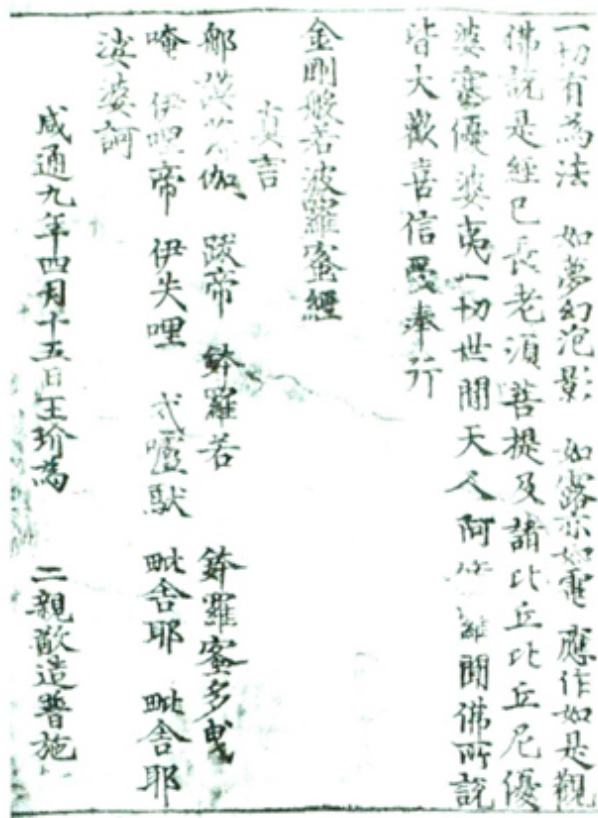 一切有為法　如夢幻泡影　如露亦如電　應作如是觀
佛說是經已長老須菩提及諸比丘比丘尼優
婆塞優婆夷一切世間天人阿脩羅聞佛所說
皆大歡喜信受奉行
金剛般若波羅蜜經
真言
那謨薄伽　跋帝　鉢羅若　鉢羅蜜多曳
唵　伊哩帝　伊失哩　式嚧馱　毗舍耶　毗舍耶
娑婆訶
咸通九年四月十五日王玠為　二親敬造普施